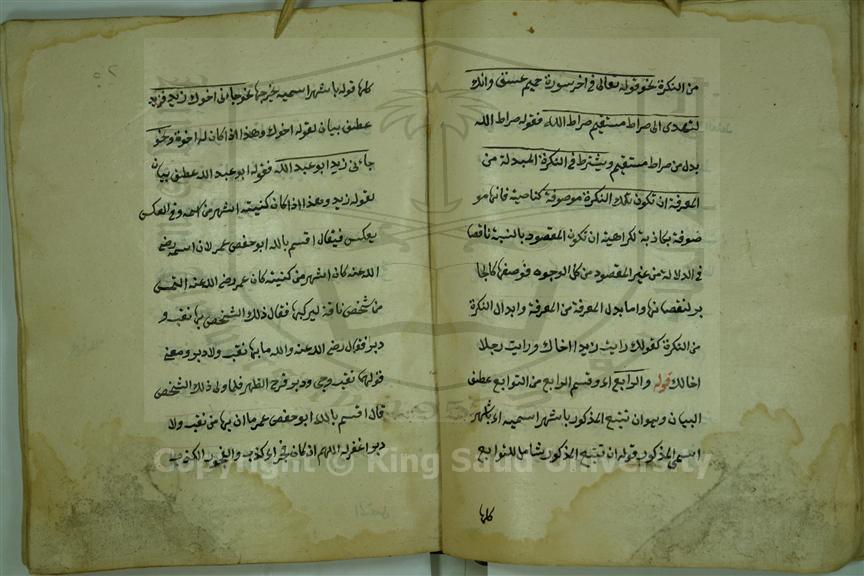 من النكرة نحو قوله تعالى في اخر سورة حميم عسق وانك
لتهدى الى صراط مستقيم صراط الله فقوله صراط الله
بدل من صراط مستقيم ويشترط في النكرة المبدلة من
المعرفة ان تكون تلك النكرة موصوفة كناصية فانها مو
صوفة بكاذبة لكراهية ان تكون المقصود بالنسبة ناقصا
في الدلالة من غير المقصود من كل الوجوه فوصفها كالجا
بر لنقصانها واما بدل المعرفة من المعرفة وابدال النكرة
من النكرة كقولك رايت زيدا اخاك ورايت رجلا
اخا لك قوله والرابع اء وقسم الرابع من التوابع عطف
البيان وهو ان تتبع المذكور باشهر اسميه اء باشهر
اسمى المذكور قوله ان تتبع المذكور شامل للتوابع
كلها
كلها قوله باشهر اسميه يخرجها نحو جائنى اخوك زيد فزيد
عطف بيان لقوله اخوك وهذا اذا كان له اخوة ونحو
جائنى زيد ابو عبد الله فقوله ابو عبد الله عطف بيان
لقوله زيد وهذا اذا كان كنيته اشهر من اسمه وفي العكس
يعكس فيقال اقسم بالله ابو حفص عمر لان اسمه رضى
الله عنه كان اشهر من كنيته كان عمر رضى الله عنه التمس
من شخص ناقة ليركبها فقال ذلك الشخص بها نقب و
دبر فقال رضى الله عنه والله ما بها نقب ولا دبر ومعنى
قولها نقب وجى ودبر قرح الظهر فلما ولى ذلك الشخص
قال اقسم بالله ابو حفص عمر ما ان بها من نقب ولا
دبر اغفر له اللهم ان كان فجر اء كذب والفجور الكذب
Copyright © King Saud University